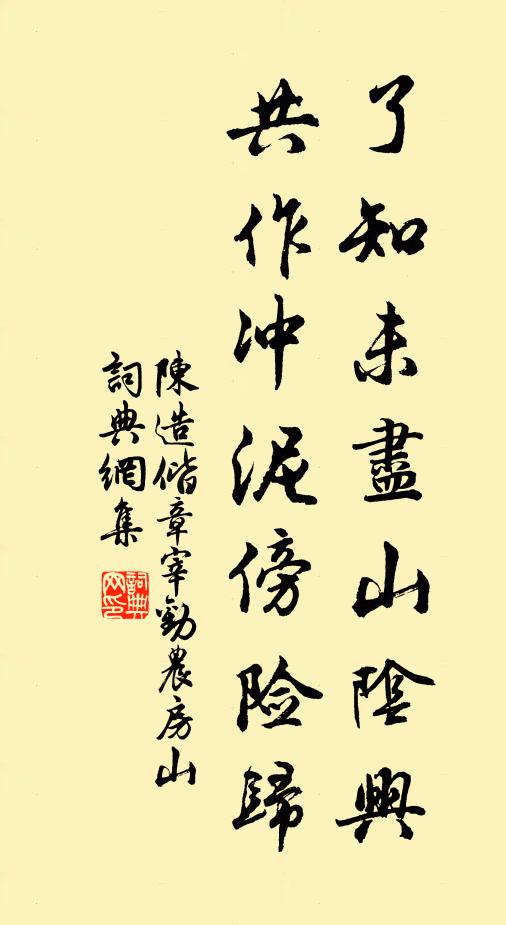 了知未盡山陰興
共作冲泥傍险歸
陳造偕章宰勸農房山
詞典網集
詞典网印